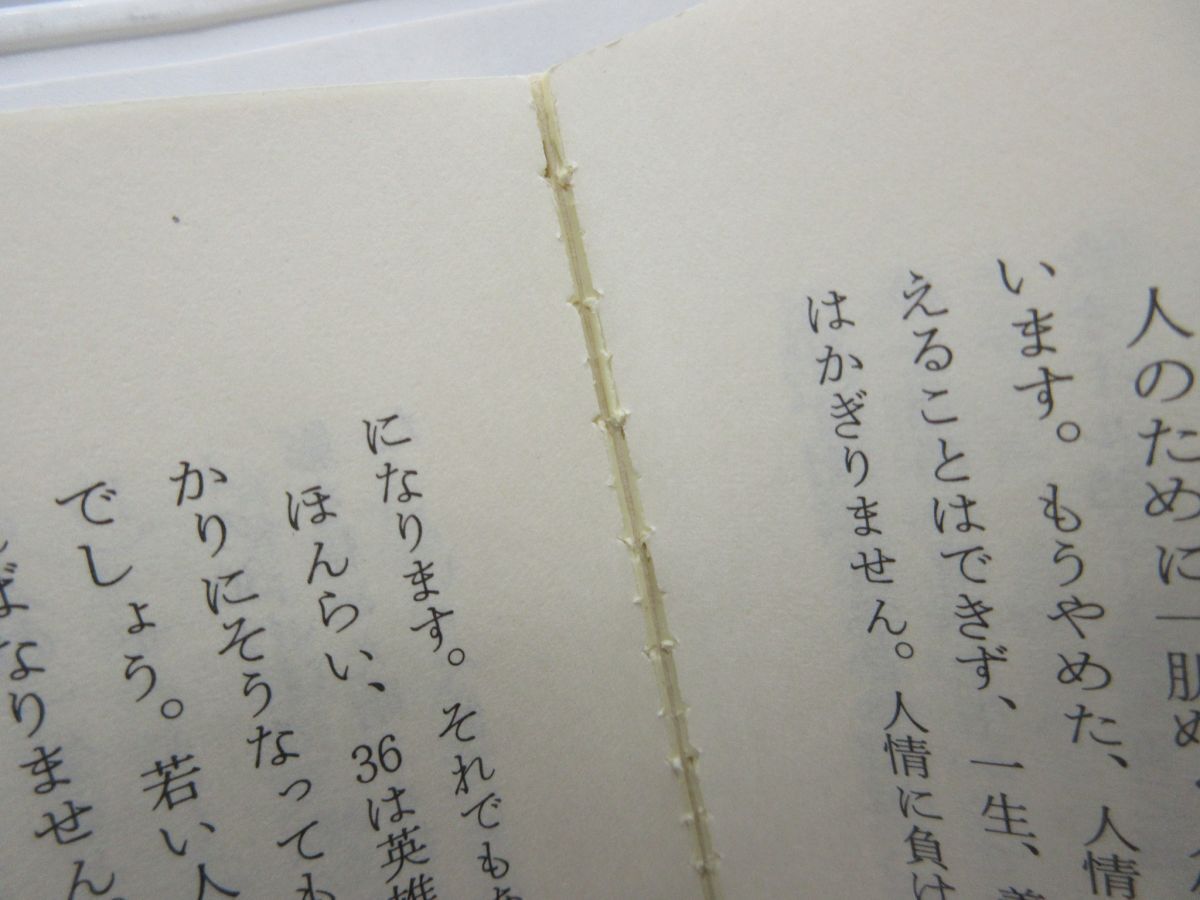 人のために一肌ぬ
います。もうやめた、人情
えることはできず、一生、
はかぎりません。人情に負け
になります。それでも
ほんらい、36は英雄
かりにそうなっても
でしょう。若い人
ばなりません。